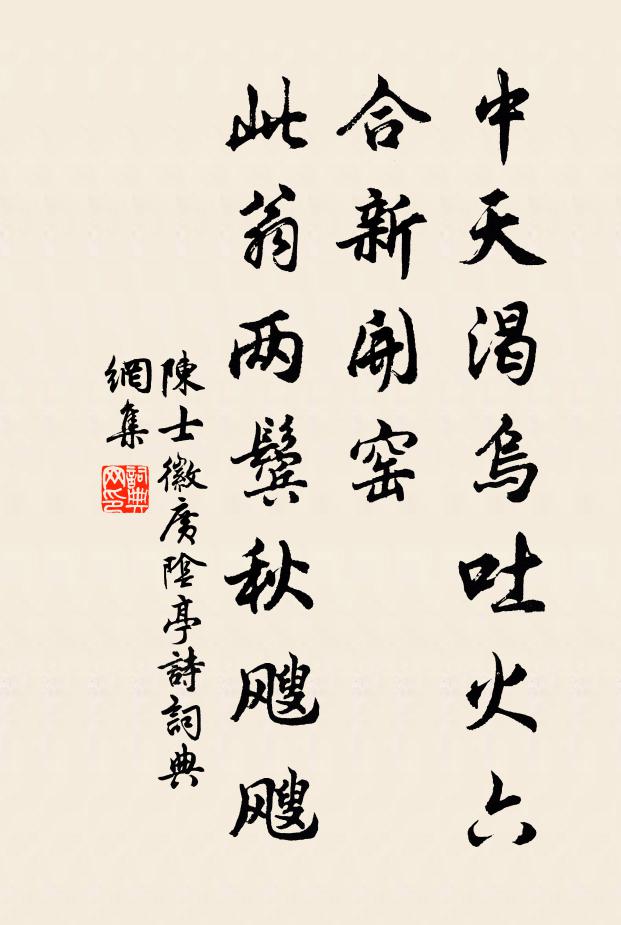 中天渴烏吐火六
合新開窑
此翁两鬓秋颼颼
陳士徽廣陰亭詩詞典
網集
詞典
网印